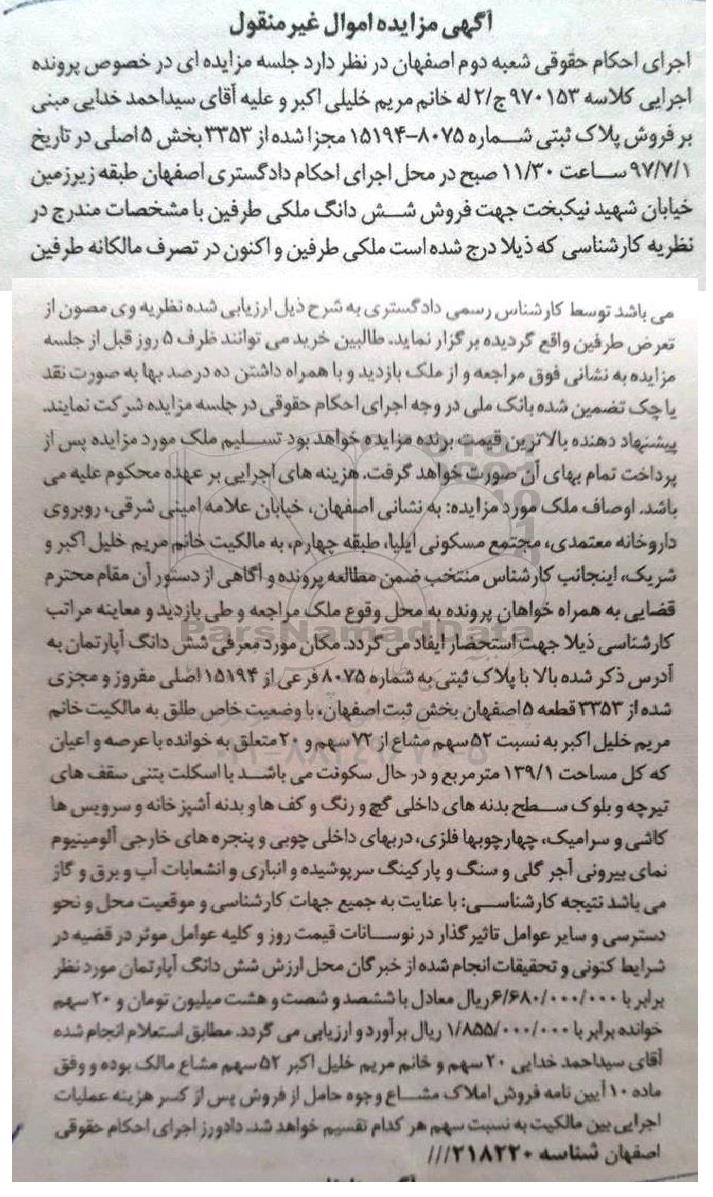 آگهی مزایده اموال غیر منقول
اجرای احکام حقوقی شعبه دوم اصفهان در نظر دارد جلسه مزایده ای در خصوص پرونده
اجرایی کلاسه ۹۷۰۱۵۳ ج/۲ له خانم مریم خلیلی اکبر و علیه آقای سیداحمد خدایی مبنی
بر فروش پلاک ثبتی شماره ۸۰۷۵-۱۵۱۹۴ مجزا شده از ۳۳۵۳ بخش ۵ اصلی در تاریخ
۹۷/۷/۱ ساعت ۱۱/۳۰ صبح در محل اجرای احکام دادگستری اصفهان طبقه زیرزمین
خیابان شهید نیکبخت جهت فروش شش دانگ ملکی طرفین با مشخصات مندرج در
نظریه کارشناسی که ذیلا درج شده است ملکی طرفین و اکنون در تصرف مالکانه طرفین
می باشد توسط کارشناس رسمی دادگستری به شرح ذیل ارزیابی شده نظریه وی مصون از
تعرض طرفین واقع گردیده برگزار نماید. طالبین خرید می توانند ظرف ۵ روز قبل از جلسه
مزایده به نشانی فوق مراجعه و از ملک بازدید و با همراه داشتن ده درصد بها به صورت نقد
یا چک تضمین شده بانک ملی در وجه اجرای احکام حقوقی در جلسه مزایده شرکت نمایند.
پیشنهاد دهنده بالاترین قیمت برنده مزایده خواهد بود تسلیم ملک مورد مزایده پس از
پرداخت تمام بهای آن صورت خواهد گرفت. هزینه های اجرایی بر عهده محکوم علیه می
باشد. اوصاف ملک مورد مزایده: به نشانی اصفهان، خیابان علامه امینی شرقی، روبروی
داروخانه معتمدی، مجتمع مسکونی ایلیا، طبقه چهارم، به مالکیت خانم مریم خلیل اکبر و
شریک، اینجانب کارشناس منتخب ضمن مطالعه پرونده و آگاهی از دستور آن مقام محترم
قضایی به همراه خواهان پرونده به محل وقوع ملک مراجعه و طی بازدید و معاینه مراتب
ParsNamadData
کارشناسی ذیلا جهت استحضار ایفاد می گردد. مکان مورد معرفی شش دانگ آپارتمان به
آدرس ذکر شده بالا با پلاک ثبتی به شماره ۸۰۷۵ فرعی از ۱۵۱۹۴ اصلی مفروز و مجزی
شده از ۳۳۵۳ قطعه ۵ اصفهان بخش ثبت اصفهان، با وضعیت خاص طلق به مالکیت خانم
مریم خلیل اکبر به نسبت ۵۲ سهم مشاع از ۷۲ سهم و ۲۰ متعلق به خوانده با عرصه و اعیان
که کل مساحت ۱۳۹/۱ متر مربع و در حال سکونت می باشد با اسکلت بتنی سقف های
تیرچه و بلوک سطح بدنه های داخلی گچ و رنگ و کف ها و بدنه آشپزخانه و سرویس ها
کاشی و سرامیک، چهارچوبها فلزی، دربهای داخلی چوبی و پنجره های خارجی آلومینیوم
نمای بیرونی آجر گلی و سنگ و پارکینگ سرپوشیده و انباری و انشعابات آب و برق و گاز
می باشد نتیجه کارشناسی: با عنایت به جمیع جهات کارشناسی و موقعیت محل و نحو
دسترسی و سایر عوامل تاثیر گذار در نوسانات قیمت روز و کلیه عوامل موثر در قضیه در
شرایط کنونی و تحقیقات انجام شده از خبرگان محل ارزش شش دانگ آپارتمان مورد نظر
برابر با ۶/۶۸۰/۰۰۰/۰۰۰ ریال معادل با ششصد و شصت و هشت میلیون تومان و ۲۰ سهم
خوانده برابر با ۱/۸۵۵/۰۰۰/۰۰۰ ریال برآورد و ارزیابی می گردد. مطابق استعلام انجام شده
آقای سیداحمد خدایی ۲۰ سهم و خانم مریم خلیل اکبر ۵۲ سهم مشاع مالک بوده و وفق
ماده ۱۰ آیین نامه فروش املاک مشاع وجوه حامل از فروش پس از کسر هزینه عملیات
اجرایی بین مالکیت به نسبت سهم هر کدام تقسیم خواهد شد. دادورز اجرای احکام حقوقی
اصفهان شناسه ۲۱۸۲۲۰///